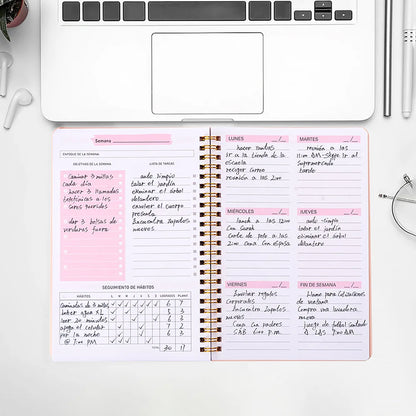 Semana
ENFOQUE DE LA SEMANA
OBJETIVOS DE LA SEMANA
LISTA DE TAREAS
Caminar 3 millas
cada día
hacer 3 llamadas
telefónicas a los
seres queridos
dar 3 bolsas de
verduras fuera
auto limpio
talar el jardín
eliminar el árbol
delantero
envolver el cuerpo
prestado
Encuentra Zapatos
nuevos
SEGUIMIENTO DE HÁBITOS
HÁBITOS L M M J V S D LOGRADO PLAN?
Caminadas de 3 millas 6 7
beber agua XL 5 3
leer 20 minutos 6 3
apaga el celular 7 2
por la noche 6 3
@ 7:00 PM
TOTAL 30 18
LUNES
hacer tandas
ir a la tienda de la
escuela
recoger correo
reunión a las 12:00
MARTES
reunión a las
11:00 AM - Skype Ir al
supermercado
tarde
MIÉRCOLES
lunch a las 12:00
con Sarah
Corte de pelo a las
2:00 Cena con esposa
JUEVES
auto limpio
talar el jardín
eliminar el árbol
delantero
VIERNES
Envolver regalos
corporates
Encuentra Zapatos
nuevos
Cena con padres
SAB 6:00 P.M.
FIN DE SEMANA
llame para cotizaciones
de ventana
Compre una lavadora
nueva
juego de fútbol sábado
A LAS 9:00 AM